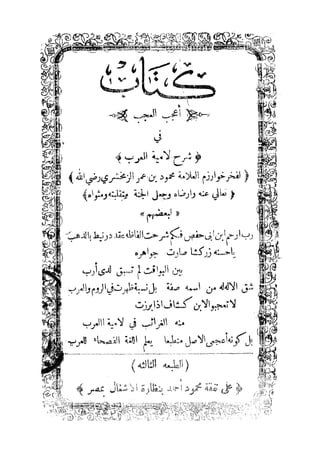 كتاب
أعجب العجب
في
شرح لامية العرب
لفخر خوارزم العلامة محمود بن عمر الزمخشري رضي الله
تعالى عنه وارضاه وجعل الجنة متقلبه ومثواه
لبعضهم
رب ارحم ابن أبي حفص فكم شرحت ألفاظه عقد در نيط بالذهب
ياحسنه زركشا صارت جواهره
بين اليواقت لم تسبق لدى أرب
شق الاله له من اسمه صفة بل نسبة ظهرت في الروم والعرب
لا تعجبوا لابن كشاف اذا برزت
منه الغرائب في لامية العرب
بل كونه أعجمي الاصل منطبعا يعلم اللغة الفصحاء للعرب
(الطبعه الثالثه)
على نفقة محمود أحمد بنظارة الاشغال بمصر